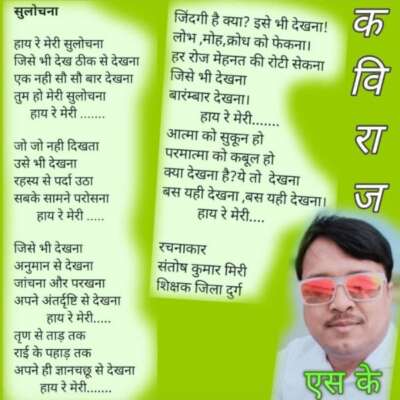 सुलोचना
हाय रे मेरी सुलोचना
जिसे भी देख ठीक से देखना
एक नही सौ सौ बार देखना
तुम हो मेरी सुलोचना
हाय रे मेरी .......
जो जो नही दिखता
उसे भी देखना
रहस्य से पर्दा उठा
सबके सामने परोसना
हाय रे मेरी .....
जिसे भी देखना
अनुमान से देखना
जांचना और परखना
अपने अंतर्दृष्टि से देखना
हाय रे मेरी.....
तृण से ताड़ तक
राई के पहाड़ तक
अपने ही ज्ञानचछू से देखना
हाय रे मेरी.......
जिंदगी है क्या? इसे भी देखना!
लोभ ,मोह,क्रोध को फेकना।
हर रोज मेहनत की रोटी सेकना
जिसे भी देखना
बारंम्बार देखना।
हाय रे मेरी.......
आत्मा को सुकून हो
परमात्मा को कबूल हो
क्या देखना है?ये तो देखना
बस यही देखना ,बस यही देखना।
हाय रे मेरी....
रचनाकार
संतोष कुमार मिरी
शिक्षक जिला दुर्ग
क
वि
रा
ज
एस के